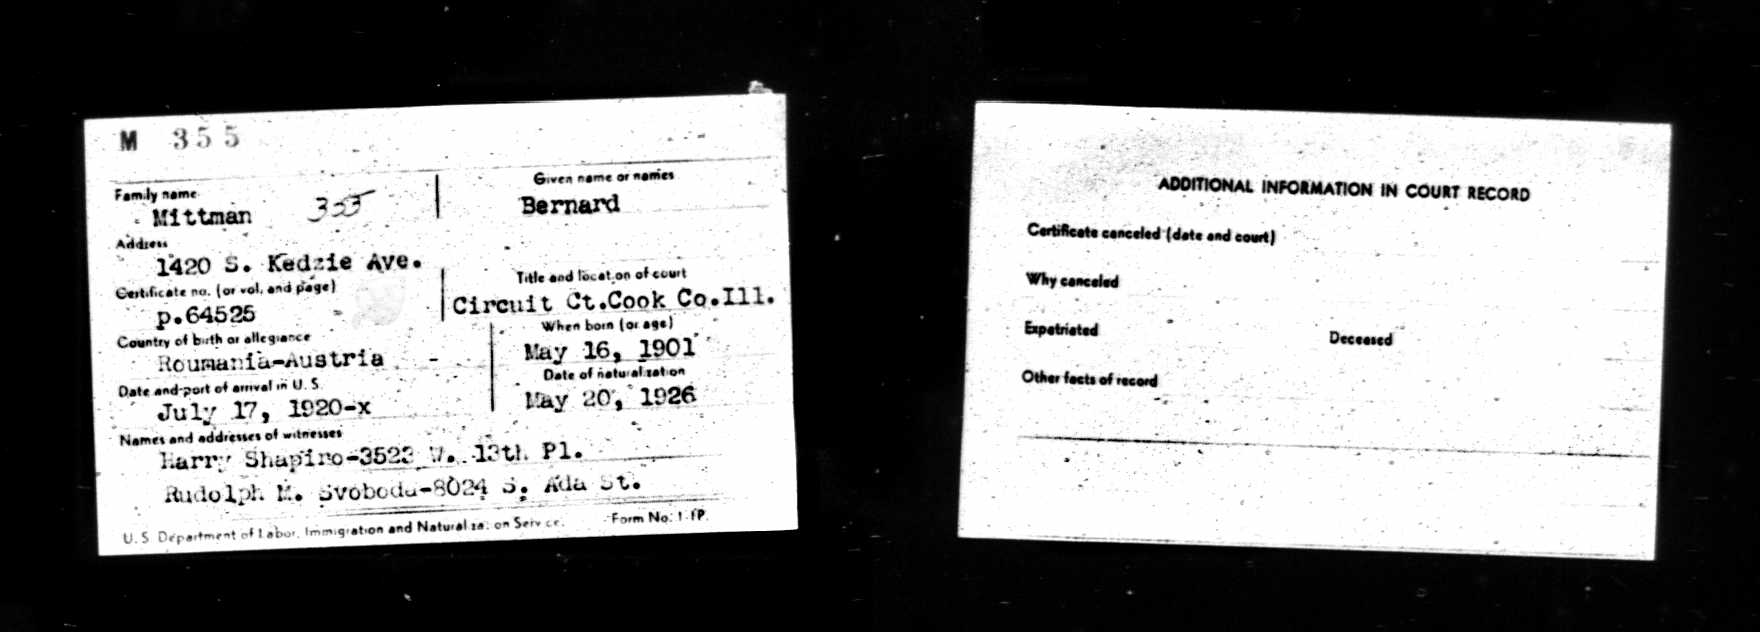 M 355
Family name
Mittman 355
Given name or names
Bernard
Address
1420 S. Kedzie Ave.
Certificate no. (or vol. and page)
p.64525
Title and location of court
Circuit Ct.Cook Co.Ill.
Country of birth or allegiance
Roumania-Austria -
When born (or age)
May 16, 1901
Date and port of arrival in U. S.
July 17, 1920-x
Date of naturalization
May 20, 1926
Names and addresses of witnesses
Harry Shapiro-3523 W. 13th Pl.
Rudolph M. Svoboda-8024 S. Ada St.
U. S. Department of Labor, Immigration and Naturalization Service. Form No. 1-IP.
ADDITIONAL INFORMATION IN COURT RECORD
Certificate canceled (date and court)
Why canceled
Expatriated Deceased
Other facts of record